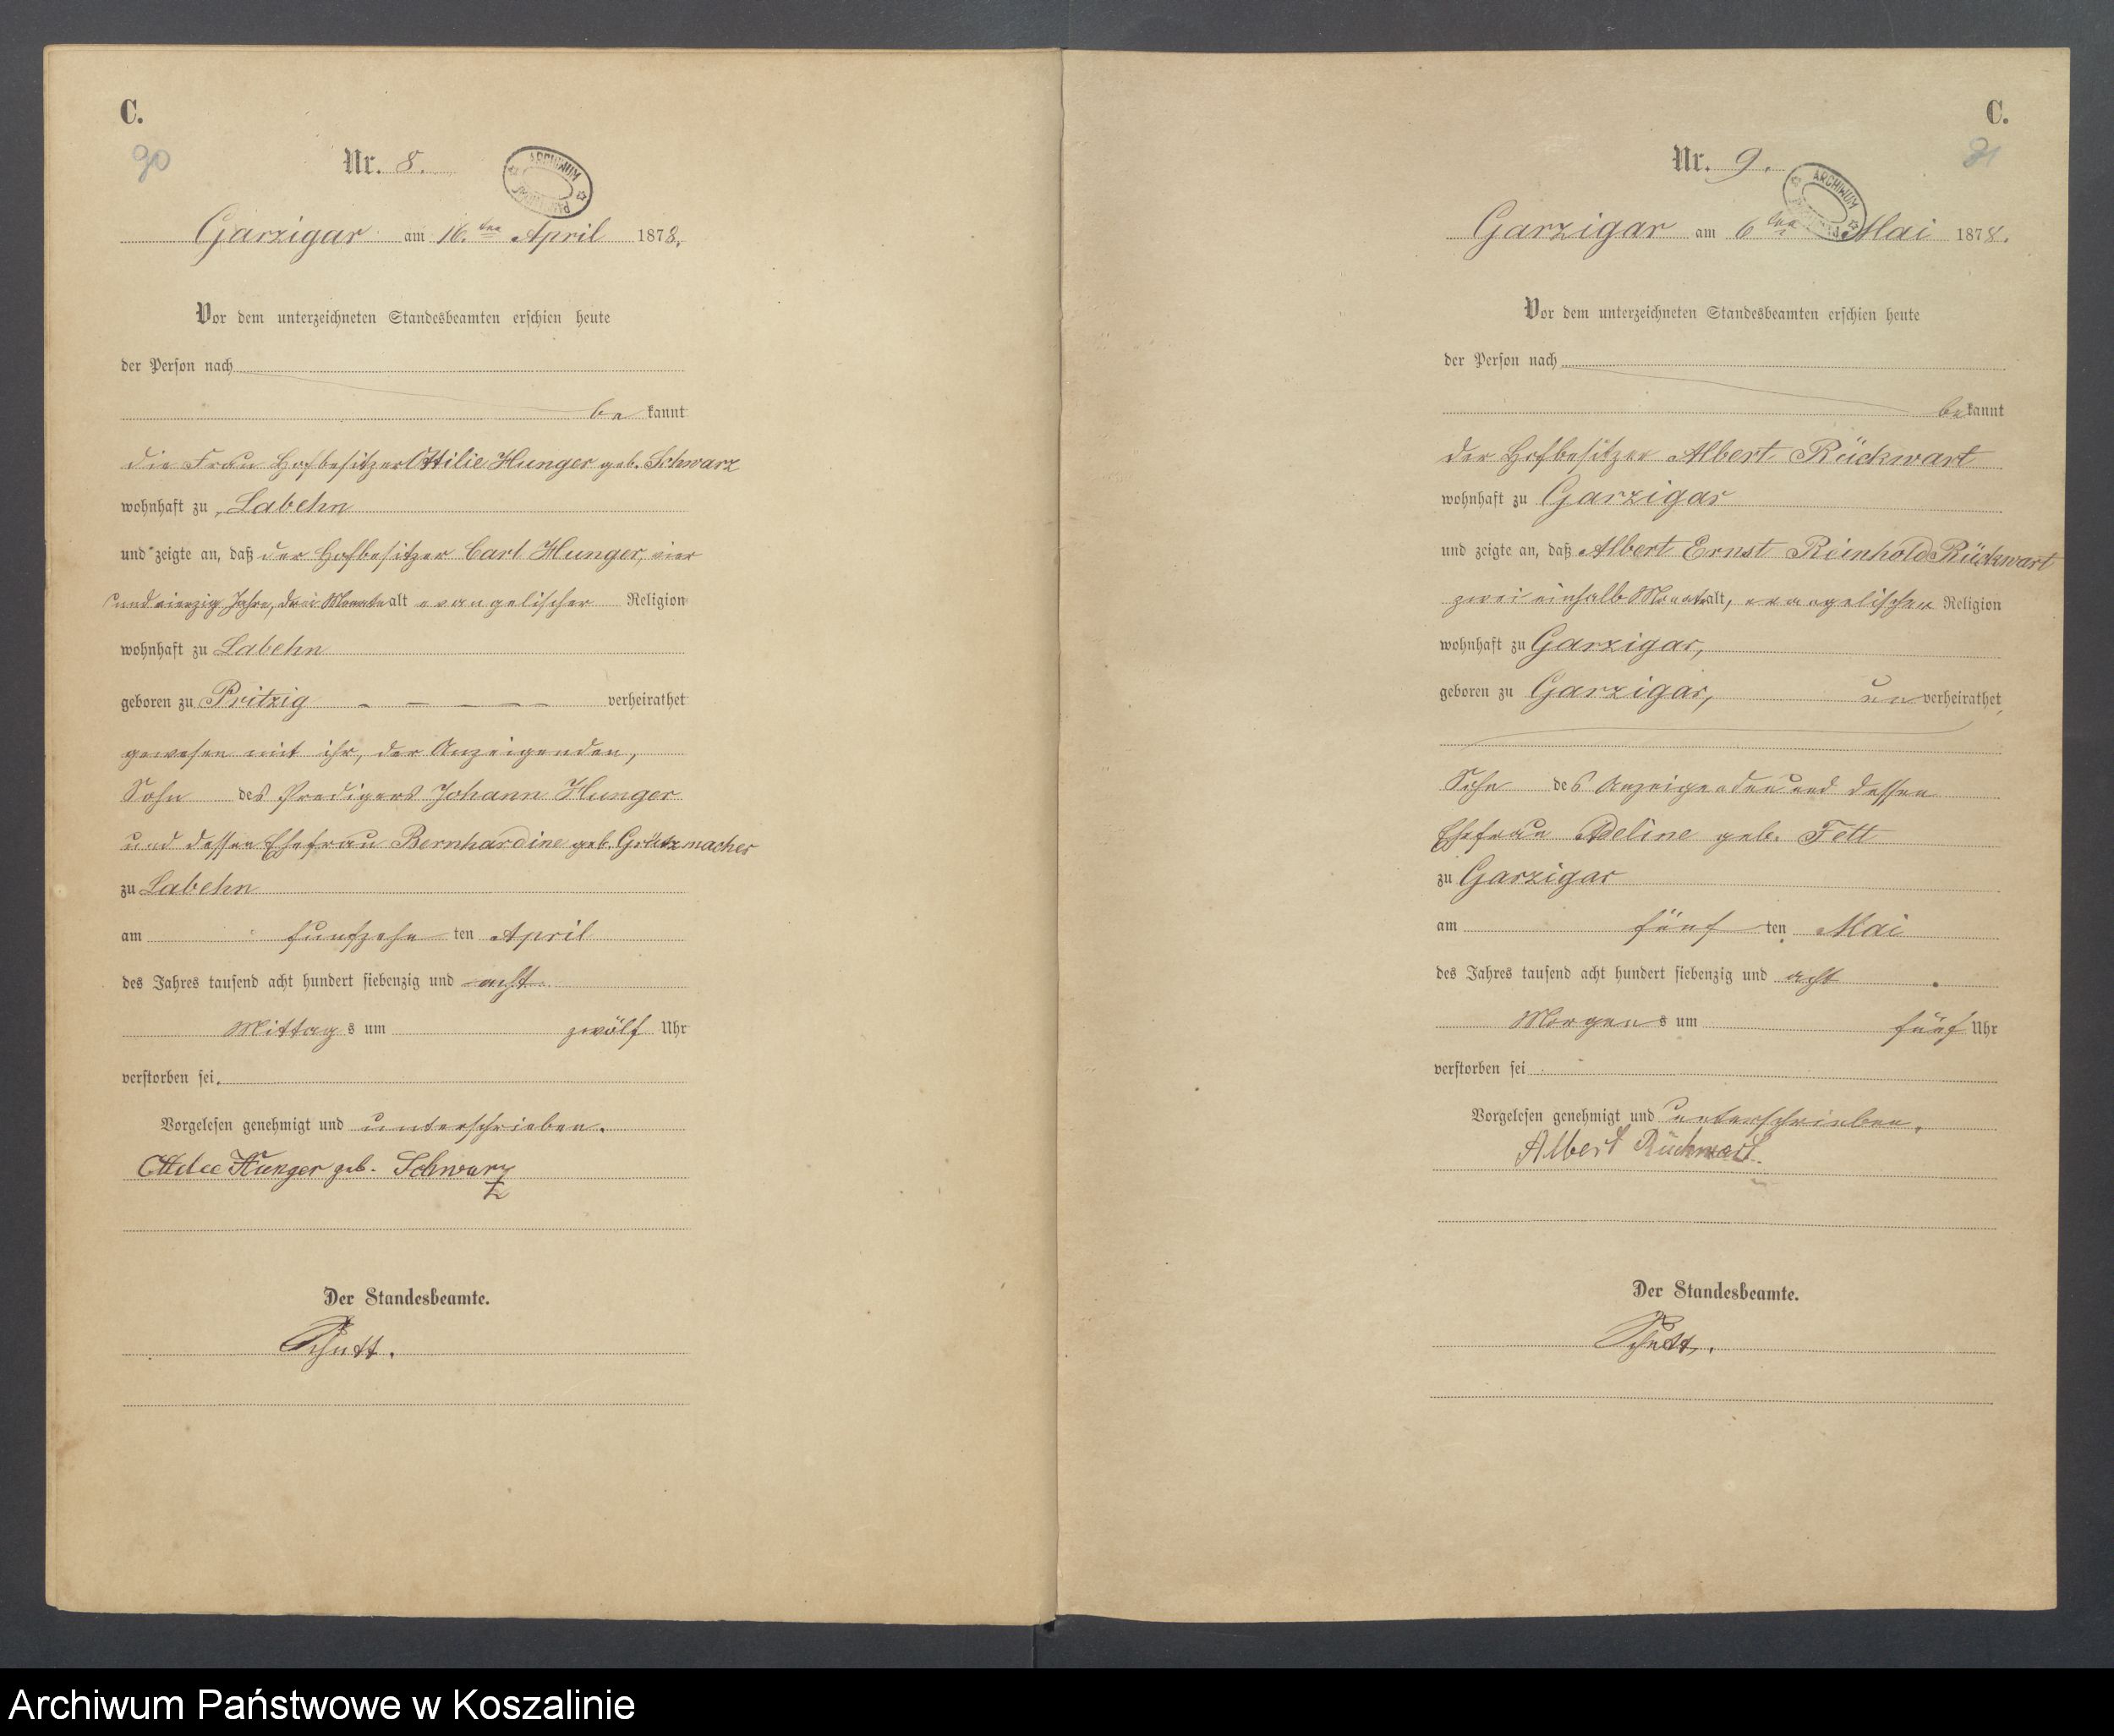 C.
90
Nr. 8.
ARCHIWUM
Garzigar am 16. ten April 1878.
Vor dem unterzeichneten Standesbeamten erschien heute
der Person nach
be kannt
die Frau Hofbesitzer Ottilie Hunger geb. Schwarz
wohnhaft zu Labehn
und zeigte an, daß der Hofbesitzer Carl Hunger, vier
und vierzig Jahre, drei Monate alt evangelischer Religion
wohnhaft zu Labehn
geboren zu Pritzig verheirathet
gewesen mit ihr, der Anzeigenden,
Sohn des Predigers Johann Hunger
und dessen Ehefrau Bernhardine geb. Grützmacher
zu Labehn
am funfzehn ten April
des Jahres tausend acht hundert siebenzig und acht
Mittag s um zwölf Uhr
verstorben sei.
Vorgelesen genehmigt und unterschrieben.
Hunger geb. Schwarz
Der Standesbeamte.
Schutt.
C.
Nr. 9.
ARCHIWUM
Garzigar am 6 ten Mai 1878.
Vor dem unterzeichneten Standesbeamten erschien heute
der Person nach
be kannt
der Hofbesitzer Albert Rückwart
wohnhaft zu Garzigar
und zeigte an, daß Albert Ernst Reinhold Rückwart
zwei einhalb Monat alt, evangelischer Religion
wohnhaft zu Garzigar,
geboren zu Garzigar, un verheirathet,
Sohn des Anzeigenden und dessen
Ehefrau Adeline geb. Fett
zu Garzigar
am fünf ten Mai
des Jahres tausend acht hundert siebenzig und acht
Morgen s um fünf Uhr
verstorben sei
Vorgelesen genehmigt und unterschrieben.
Albert Rückwart
Der Standesbeamte.
Schutt.
Archiwum Państwowe w Koszalinie